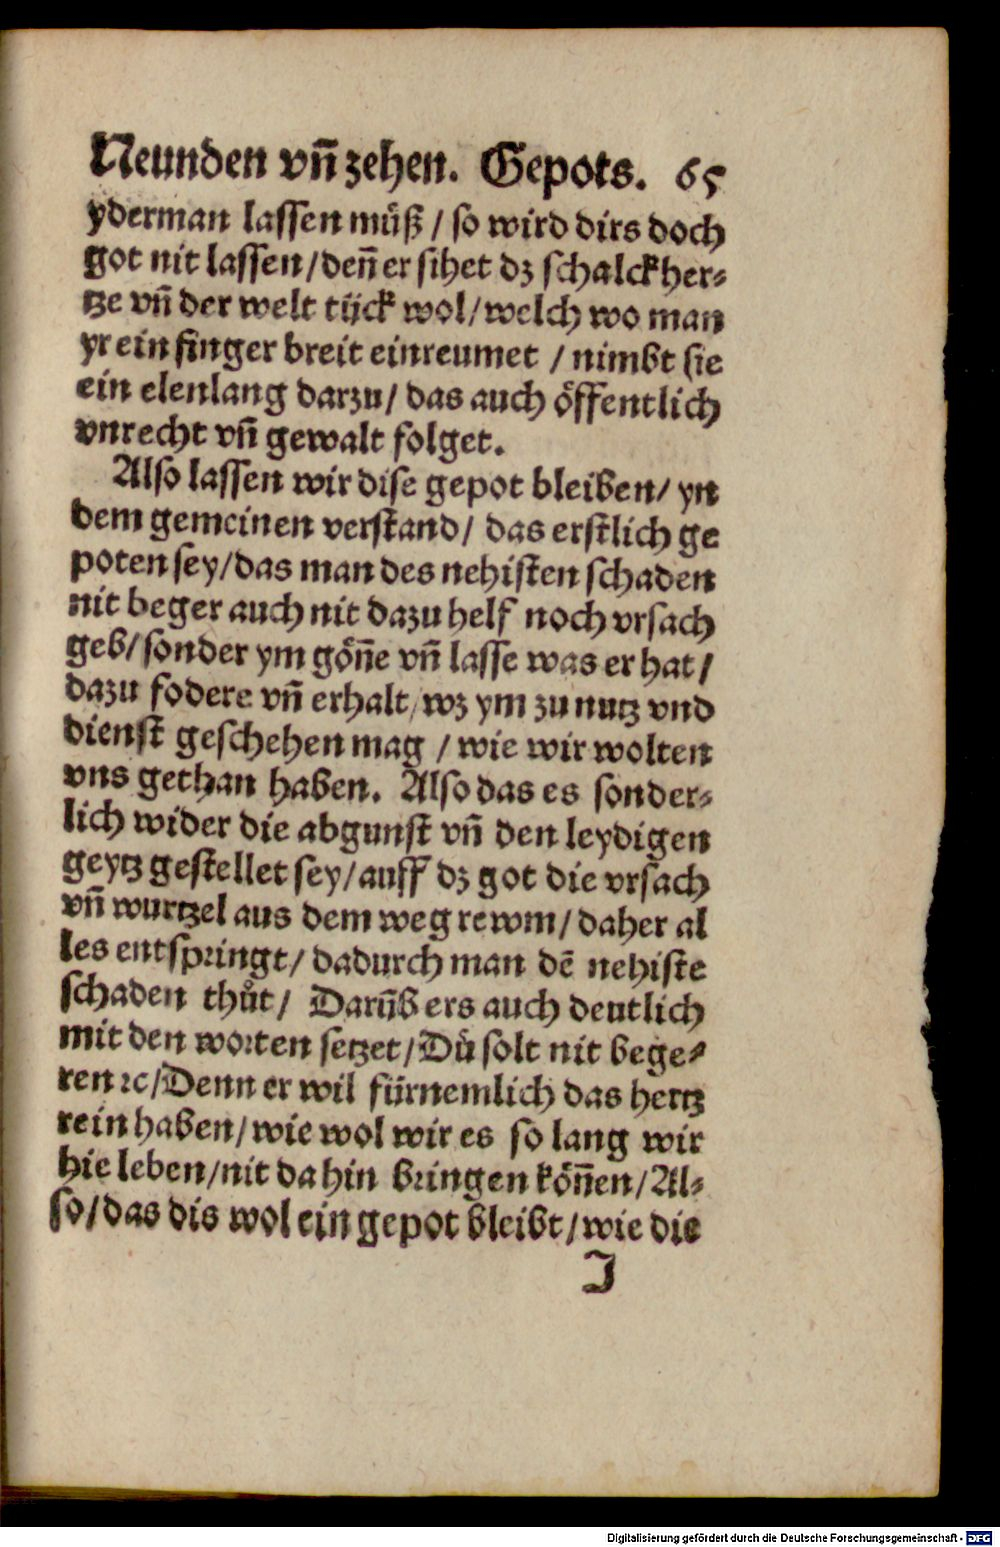 Neunden vn̄ zehen. Gepots. 65
yderman lassen můß / so wird dirs doch
got nit lassen / den̄ er sihet dz schalckher⸗
tze vn̄ der welt tück wol / welch wo man
yr ein finger breit einreumet / nimbt sie
ein elenlang darzu / das auch öffentlich
vnrecht vn̄ gewalt folget.
Also lassen wir dise gepot bleiben / yn
dem gemeinen verstand / das erstlich ge
poten sey / das man des nehisten schaden
nit beger auch nit dazu helf noch vrsach
geb / sonder ym gön̄e vn̄ lasse was er hat /
dazu fodere vn̄ erhalt / wz ym zu nutz vnd
dienst geschehen mag / wie wir wolten
vns gethan haben. Also das es sonder⸗
lich wider die abgunst vn̄ den leydigen
geytz gestellet sey / auff dz got die vrsach
vn̄ wurtzel aus dem weg rewm / daher al
les entspringt / dadurch man dē nehiste
schaden thůt / Darūb ers auch deutlich
mit den worten setzet / Dů solt nit bege⸗
ren ꝛc / Denn er wil fürnemlich das hertz
rein haben / wie wol wir es so lang wir
hie leben / nit da hin bringen kön̄en / Al⸗
so / das dis wol ein gepot bleibt / wie die
J
Digitalisierung gefördert durch die Deutsche Forschungsgemeinschaft - DFG